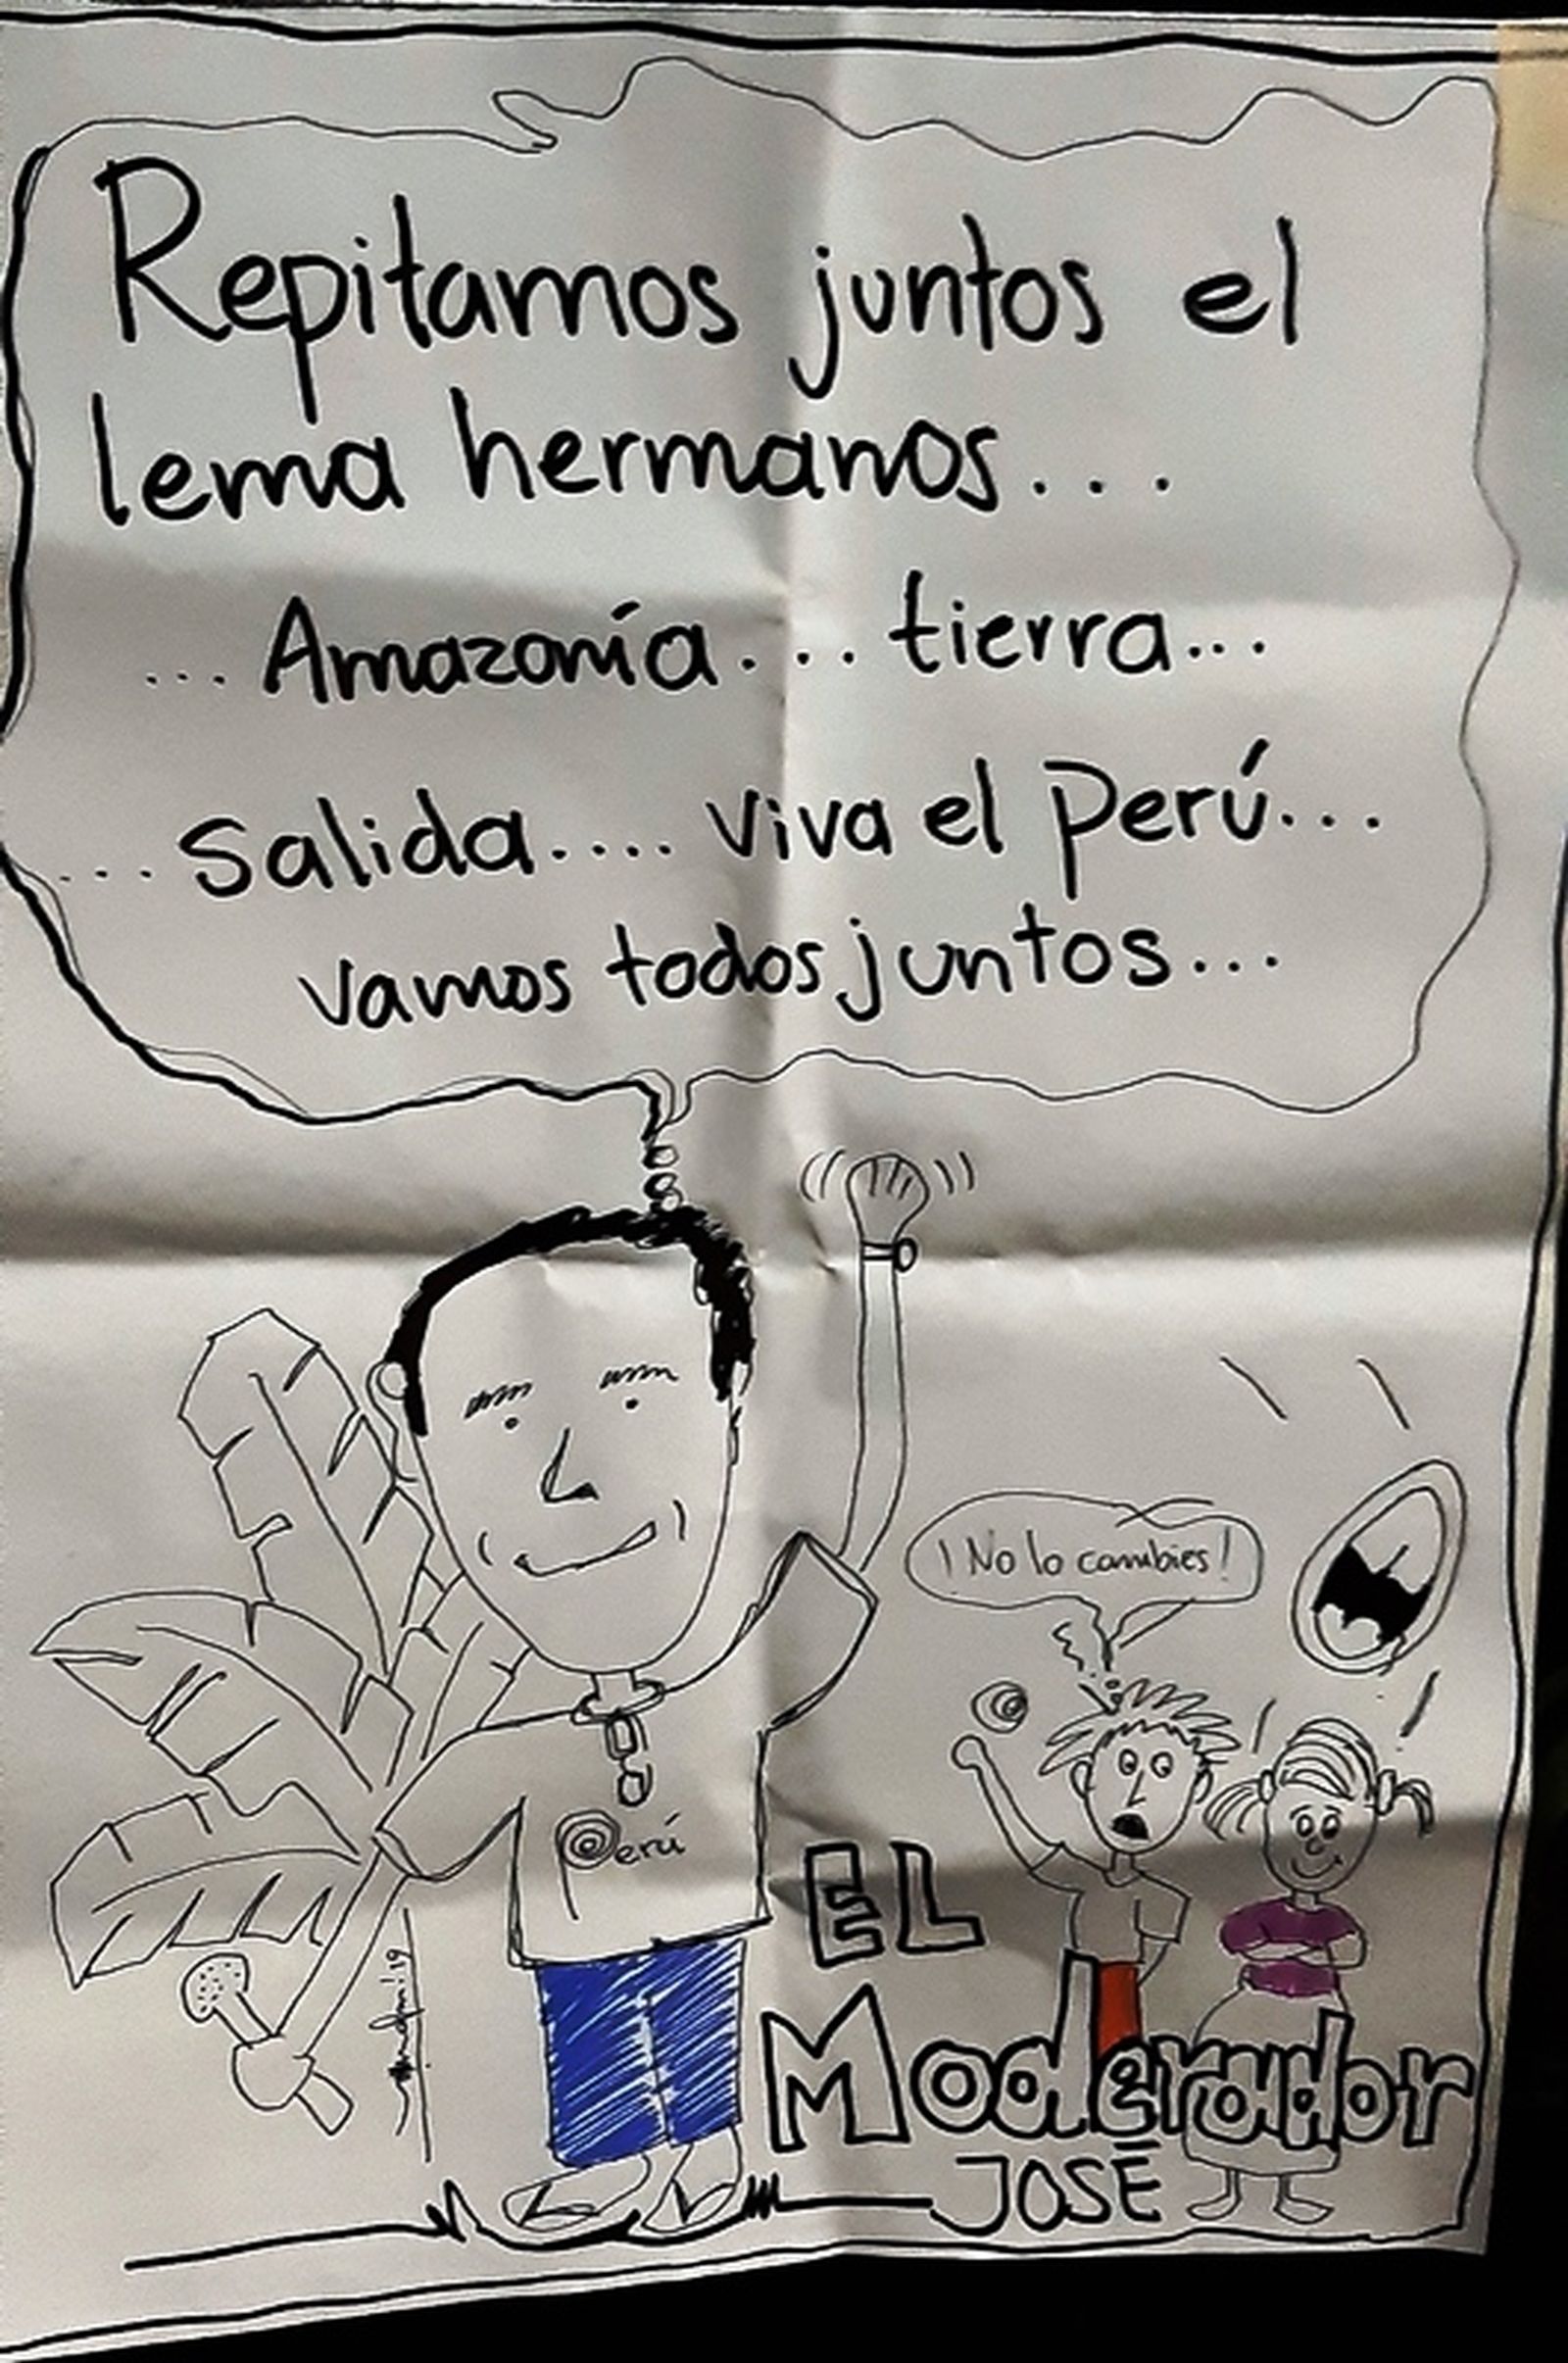 Repitamos juntos el
lema hermanos...
... Amazonía... tierra...
... Salida.... viva el Perú...
vamos todos juntos...
¡No lo cambies!
Perú
EL
Moderador
JOSÉ